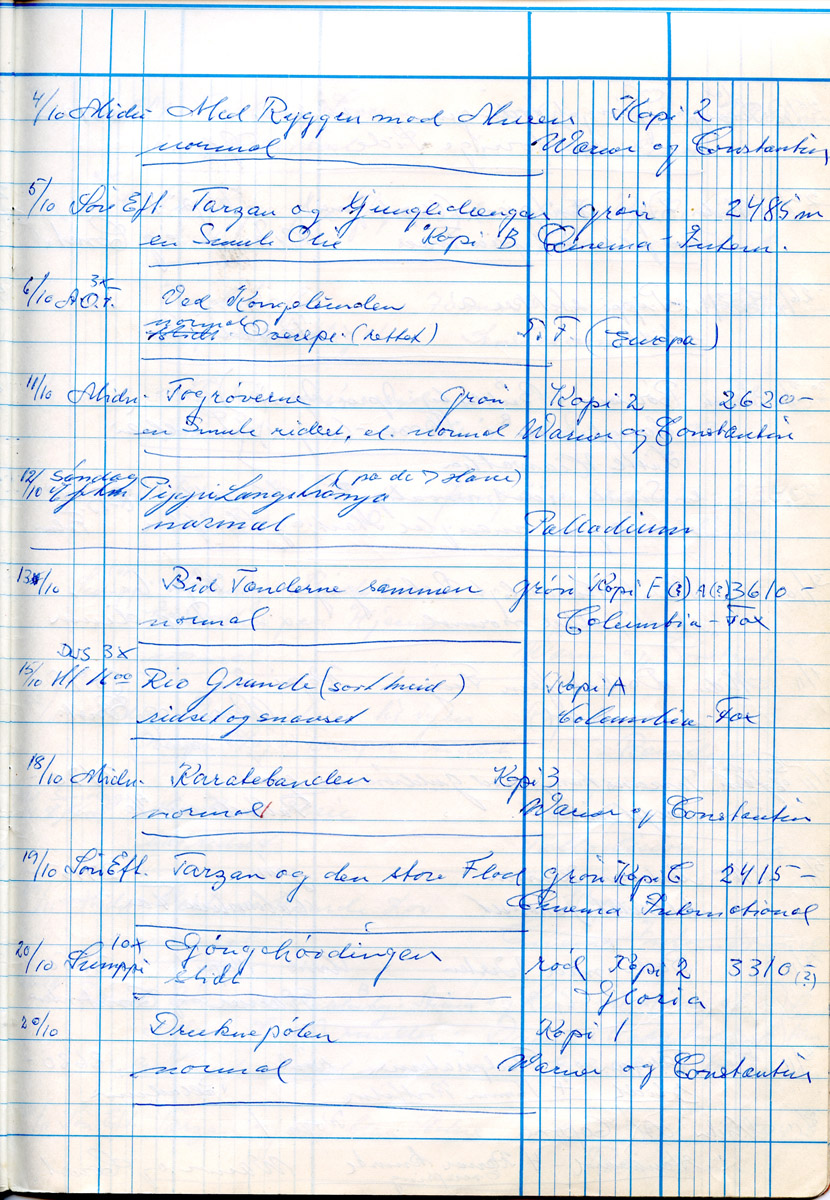 4/10 Midn. Med Ryggen mod Muren Kopi 2
normal Warner og Constantin
5/10 Sön Eft. Tarzan og Djungledrengen grön 2485 m
en Smule Olie Kopi B Cinema-Intern.
3x
6/10 A.O.F. Ved Kongelunden
normal Overspi. (rettet) T. F. (Europa)
11/10 Midn. Togröverne grön Kopi 2 2620 -
en Smule ridset, el. normal Warner og Constantin
12/10 Söndag (på de 7 Have)
Pippi Langstrømpe
normal Palladium
13/10 Bid Tænderne sammen grön Kopi F (?) A (?) 3610 -
normal Columbia-Fox
DJS 3x
15/10 Kl 1400 Rio Grande (sort hvid) Kopi A
ridset og snavset Columbia-Fox
18/10 Midn. Karatebanden Kopi 3
normal Warner og Constantin
19/10 Sön Eft. Tarzan og den store Flod grön Kopi C 2415 -
Cinema International
10x
20/10 Göngehövdingen röd Kopi 2 3310 (?)
slidt Gloria
20/10 Druknepölen Kopi 1
normal Warner og Constantin